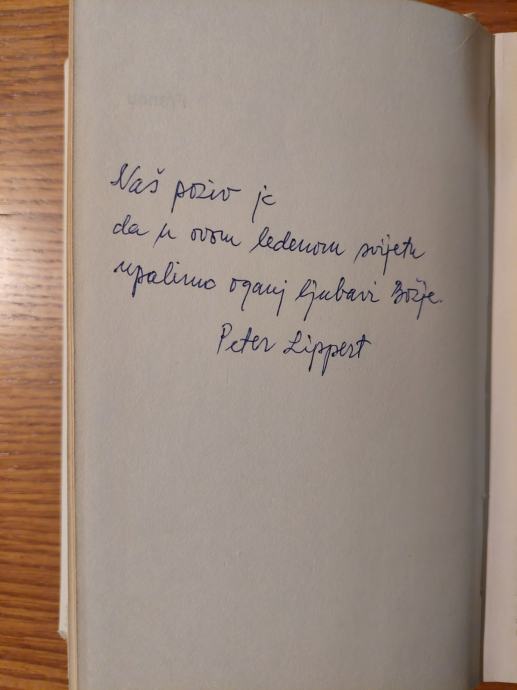 Naš poziv je
da u ovom ledenom svijetu
upalimo oganj ljubavi Božje.
Peter Lippert